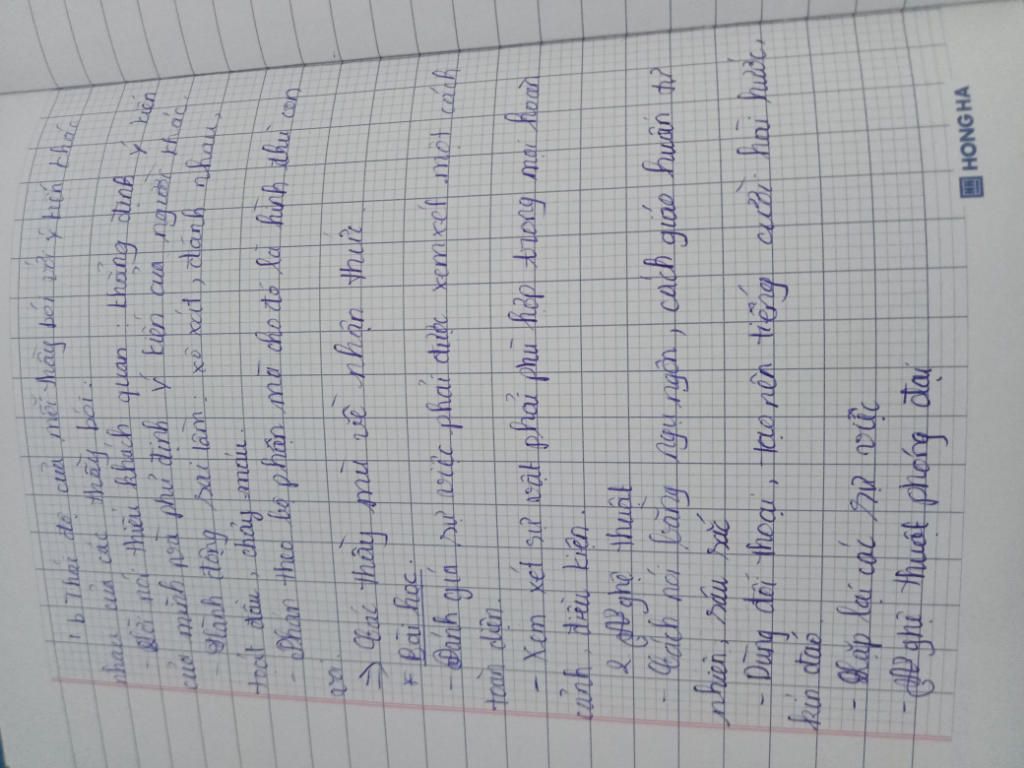 1b Thái độ của mỗi thầy bói với ý kiến khác
nhau của các thầy bói:
- Lời nói thiếu khách quan: khẳng định ý kiến
của mình và phủ định ý kiến của người khác.
- Hành động sai lầm: xô xát, đánh nhau,
toát đầu, chảy máu.
- Phán theo bộ phận mà cho đó là hình thù con
voi.
=> Các thầy mù về nhận thức.
* Bài học:
- Đánh giá sự việc phải được xem xét một cách
toàn diện.
- Xem xét sự vật phải phù hợp trong mọi hoàn
cảnh, điều kiện.
2 Nghệ thuật
- Cách nói bằng ngụ ngôn, cách giáo huấn tự
nhiên, sâu sắc
- Dùng đối thoại, tạo nên tiếng cười hài hước,
kín đáo
- Lặp lại các sự việc
- Nghệ thuật phóng đại
HONGHA